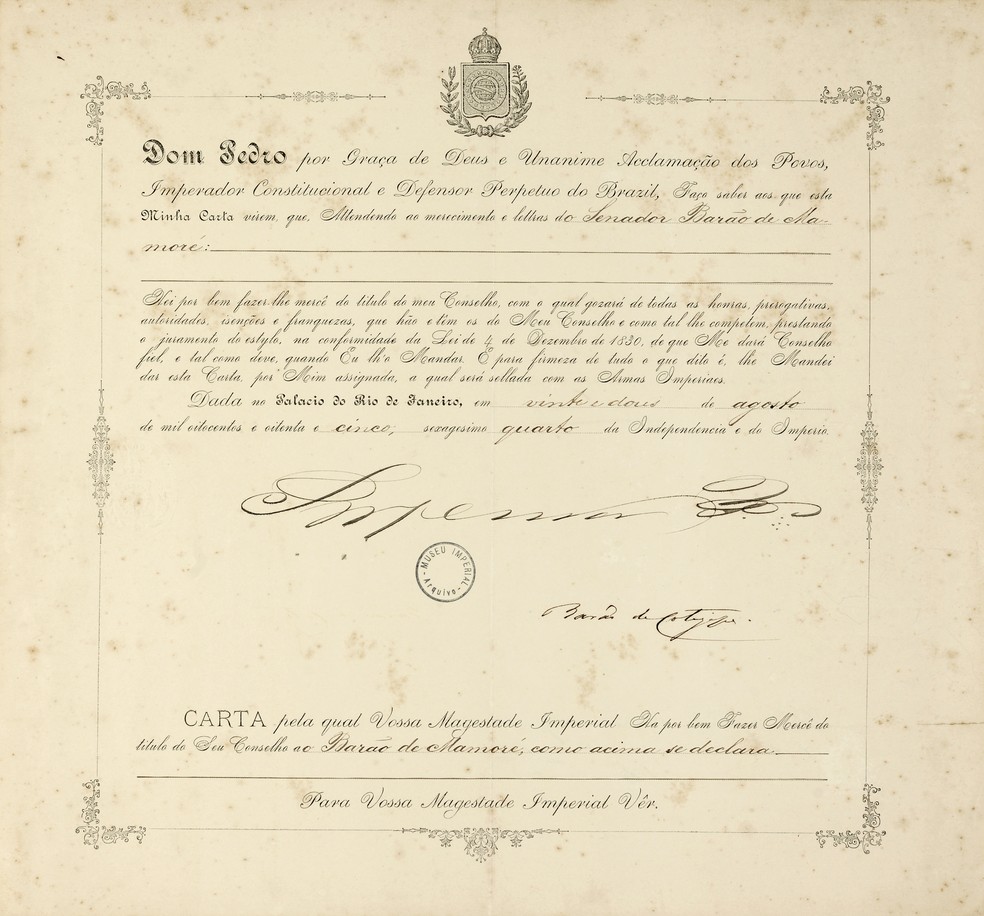 Dom Pedro por Graça de Deus e Unanime Acclamação dos Povos,
Imperador Constitucional e Defensor Perpetuo do Brazil, Faço saber aos que esta
Minha Carta virem, que, Attendendo ao merecimento e lettras do Senador Barão de Ma-
moré:
Hei por bem fazer-lhe mercê do titulo do meu Conselho, com o qual gozará de todas as honras, prerogativas,
autoridades, isenções e franquezas, que hão e têm os do Meu Conselho e como tal lhe competem, prestando
o juramento do estylo, na conformidade da Lei de 4 de Dezembro de 1830, de que Me dará Conselho
fiel, e tal como deve, quando Eu lh'o Mandar. E para firmeza de tudo o que dito é, lhe Mandei
dar esta Carta, por Mim assignada, a qual será sellada com as Armas Imperiaes.
Dada no Palacio do Rio de Janeiro, em vinte e dous de agosto
de mil oitocentos e oitenta e cinco, sexagesimo quarto da Independencia e do Imperio.
Imperador
MUSEU IMPERIAL
- Arquivo -
Barão de Cotegipe.
CARTA pela qual Vossa Magestade Imperial Ha por bem Fazer Mercê do
titulo do Seu Conselho ao Barão de Mamoré, como acima se declara.
Para Vossa Magestade Imperial Vêr.